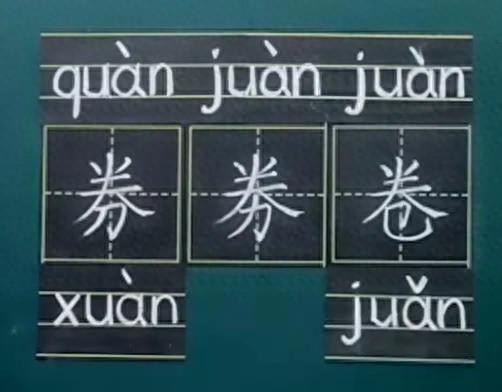 quàn juàn juàn
券 劵 卷
xuàn juǎn